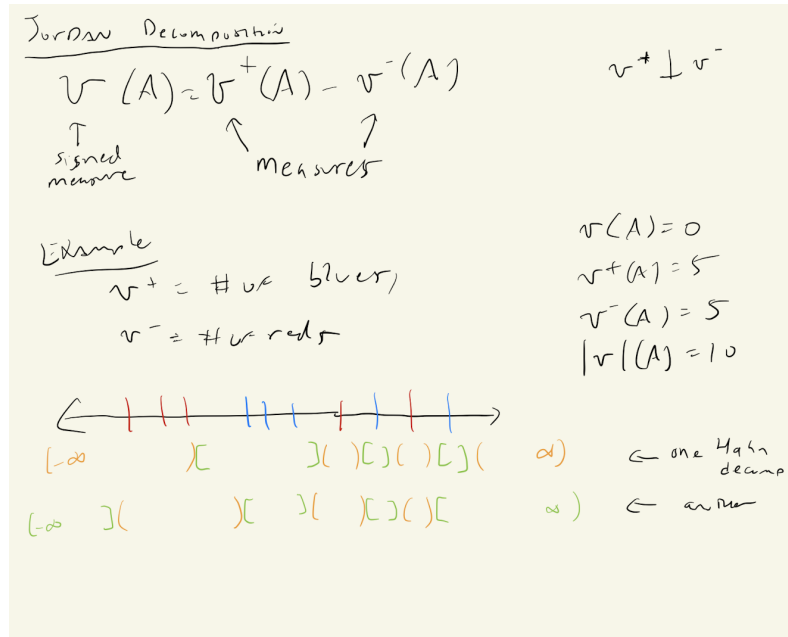 Jordan Decomposition
v (A) = v⁺(A) - v⁻(A)
v⁺ ⊥ v⁻
↑
signed
measure
measures
Example
v⁺ = # of blues,
v⁻ = # of reds
v(A) = 0
v⁺(A) = 5
v⁻(A) = 5
|v|(A) = 10
(-∞ )[ ]( )[ ]( )[ ]( ∞) ← one Hahn
decomp
(-∞ ]( )[ ]( )[ ]( )[ ∞) ← another